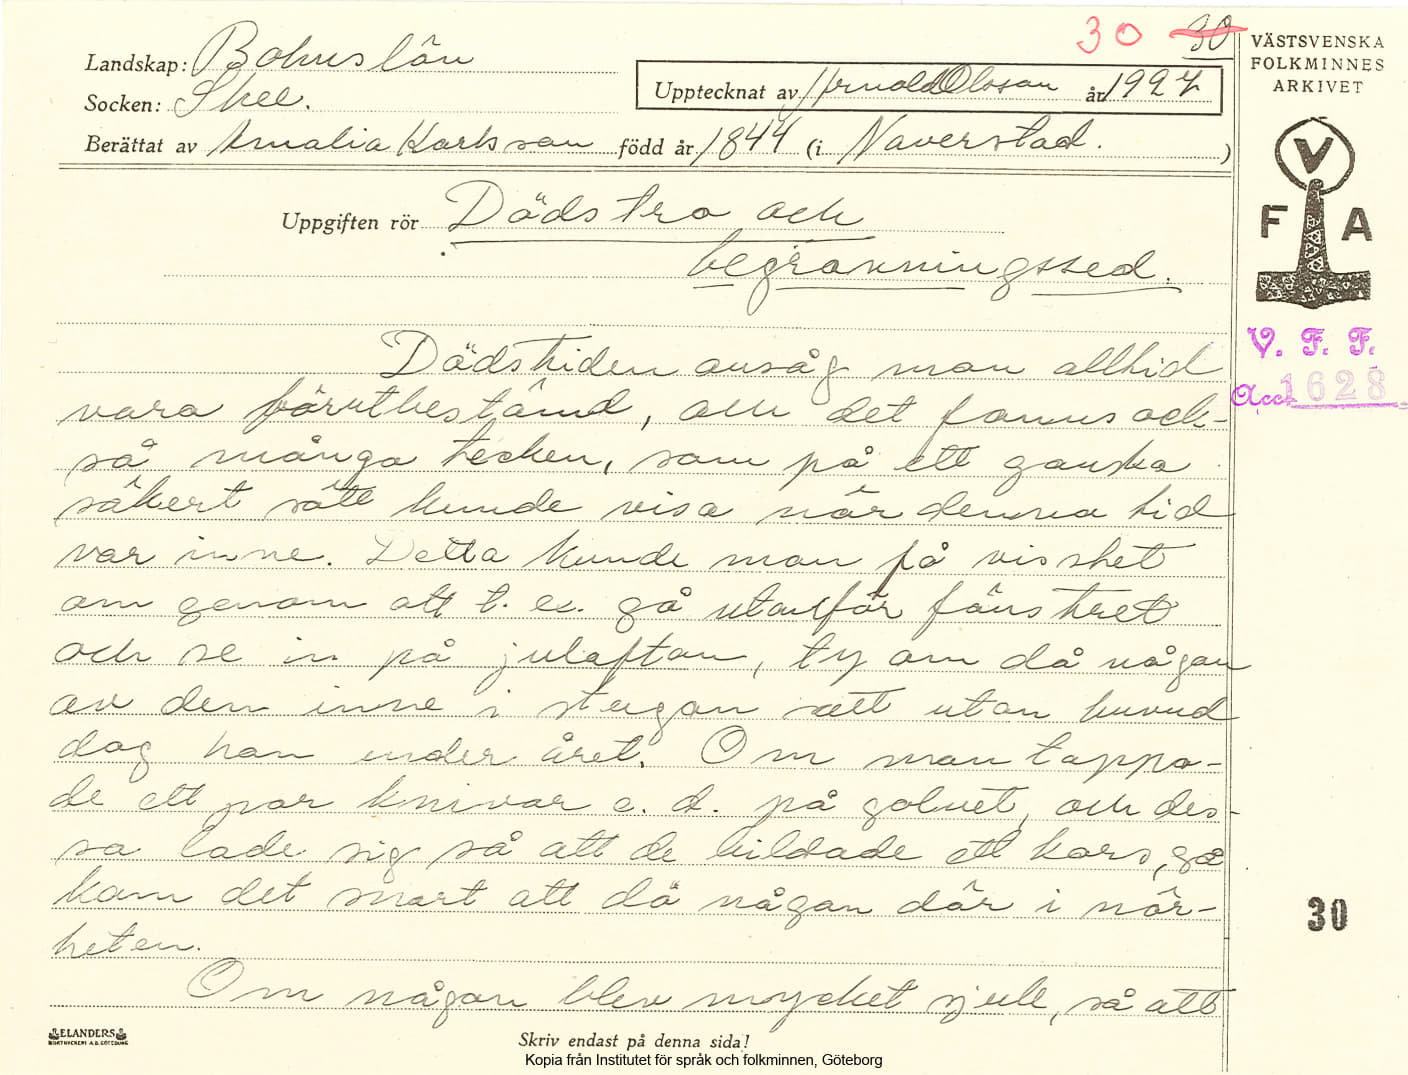 30 30
VÄSTSVENSKA
FOLKMINNES
ARKIVET
Landskap: Bohuslän
Socken: Skee.
Upptecknat av Arnold Olsson år 1927
Berättat av Amalia Karlsson född år 1844 (i Naverstad. )
V
F A
Uppgiften rör Dödstro och
begravningssed.
V. F. F.
Acc. 1628
Dödstiden ansåg man alltid
vara förutbestämd, och det fanns ock-
så många tecken, som på ett ganska
säkert sätt kunde visa när denna tid
var inne. Detta kunde man få visshet
om genom att t. ex. gå utanför fönstret
och se in på julafton, ty om då någon
av dem inne i stugan satt utan huvud
dog han under året. Om man tappa-
de ett par knivar e. d. på golvet, och des-
sa lade sig så att de bildade ett kors, så
kom det snart att dö någon där i när-
heten.
30
Om någon blev mycket sjuk, så att
ELANDERS
BOKTRYCKERI A.B. GÖTEBORG
Skriv endast på denna sida!
Kopia från Institutet för språk och folkminnen, Göteborg